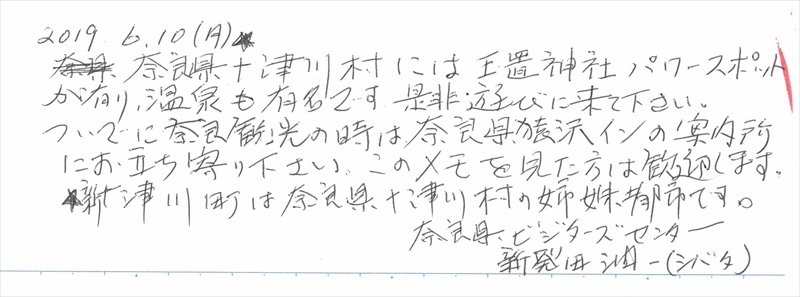 2019 6.10(月)
奈良県十津川村には玉置神社パワースポット
が有り、温泉も有名です 是非遊びに来て下さい。
ついでに奈良観光の時は奈良県猿沢インの案内所
にお立ち寄り下さい、このメモを見た方は歓迎します。
新十津川町は奈良県十津川村の姉妹都市です。
奈良県ビジターズセンター
新発田 一(シバタ)